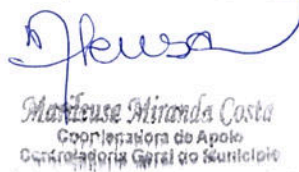 Marileusa Miranda Costa
Coordenadora do Apoio
Controladoria Geral do Município